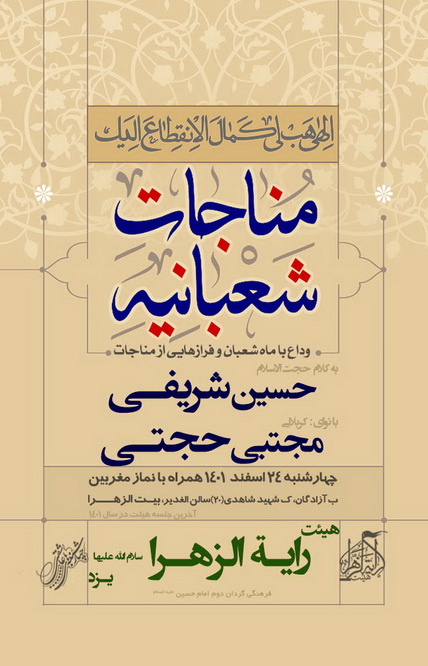 إلهی هب لی کمال الانقطاع إلیک
مناجات
شعبانیه
وداع با ماه شعبان و فرازهایی از مناجات
به کلام حجت الاسلام
حسین شریفی
با نوای: کربلایی
مجتبی حجتی
چهارشنبه ۲۴ اسفند ۱۴۰۱ همراه با نماز مغربین
ب آزادگان، ک شهید شاهدی(۲۰) سالن الغدیر، بیت الزهرا
آخرین جلسه هیئت در سال ۱۴۰۱
هیئت
رایة الزهرا سلام الله علیها
یزد
فرهنگی گردان دوم امام حسین علیه السلام